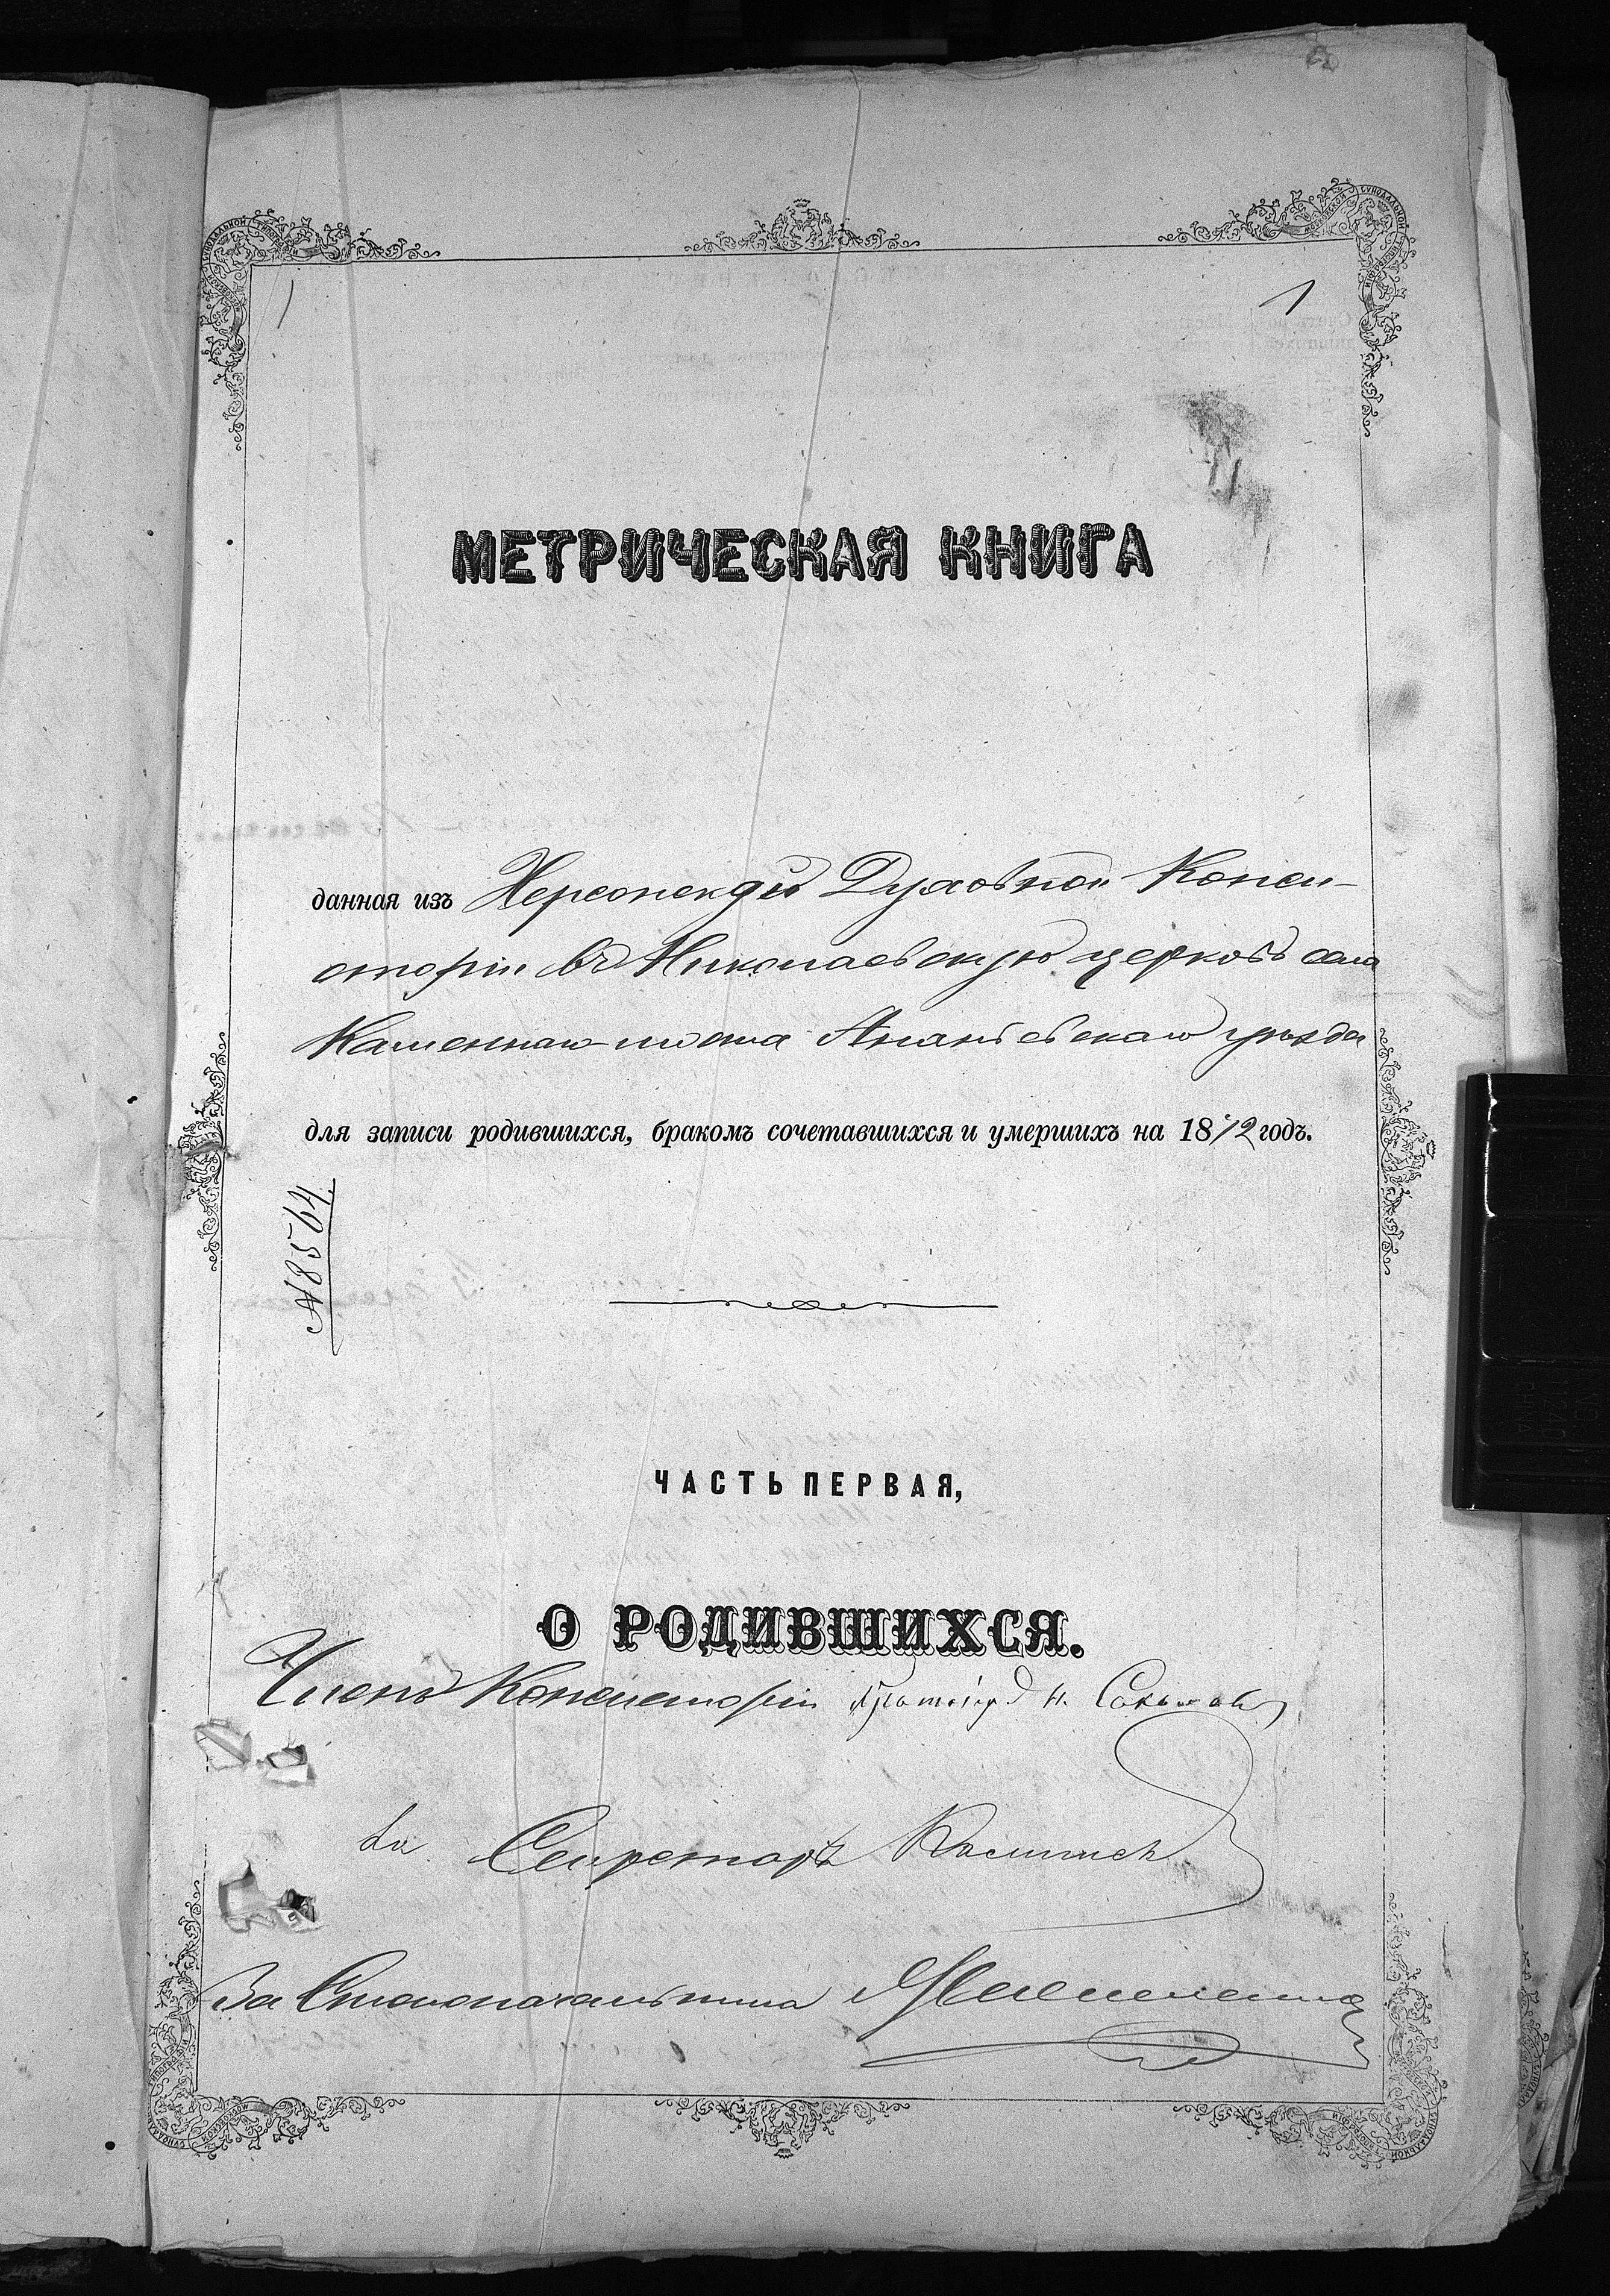 1
МЕТРИЧЕСКАЯ КНИГА
данная изъ Херсонской Духовной Конси-
сторіи въ Николаевскую церковь села
Каменнаго моста Ананьевскаго уѣзда
для записи родившихся, бракомъ сочетавшихся и умершихъ на 1872 годъ.
№ 8564.
ЧАСТЬ ПЕРВАЯ,
О РОДИВШИХСЯ.
Членъ Консисторіи Протоіерей Н. Соколовъ
Секретарь
За Столоначальника